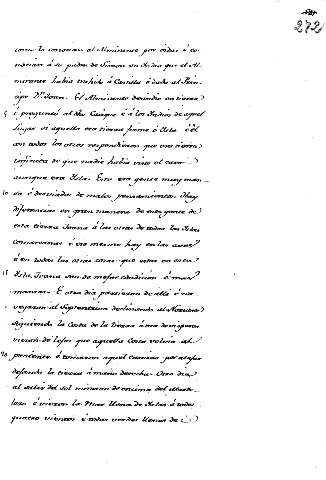 272
como la conocian al Alminante por oidas é co-
nocian á su padre de Simon un Indio que el Al-
mirante habia traido á Castilla é dado al Prin-
cipe Dn. Joan. El Alminante descindio en tierra
5 i preguntó al dho Cacique é á los Indios de aquel
lugar si aquella era tierra firme ó Isla é él
con todos los otros respondieron que era tierra
infinita de que nadie habia visto el cavo
aunque era Isla. Esta era gente muy man-
10 sa é desviados de malos pensamientos. Hay
diferencia en gran manera de esta gente de
esta tierra Joana á las otras de todas las Islas
comarcanas é eso mesmo hay en las aves
é en todas las otras cosas que estos en esta
15 Isla Joana son de mejor condicion é mas
mansas. E otro dia partieron de alli é na-
vegaron al Septentrion declinando al Noroeste
siguiendo la Costa de la tierra é á ora de visperas
vieron de lejos que aquella Costa volvia al
20 poniente é tomaron aquel camino por atajar
dejando la tierra á mano derecha. Otro dia
al salir del sol miraron de encima del Mastel
é vieron la Mar llena de Islas á todos
quatro vientos é todas verdes llenas de